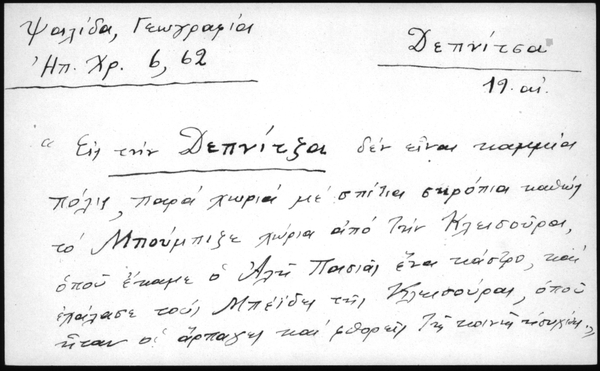 Ψαλίδα, Γεωγραφία
Ἠπ. Χρ. 6, 62
Δεπνίτσα
19. αἰ.
"Εἰς τὴν Δεπνίτζα δὲν εἶναι καμμία
πόλις, παρὰ χωριὰ μὲ σπίτια σκρόπια καθὼς
τὸ Μπούμπιζε χώρια ἀπὸ τὴν Κλεισοῦρα,
ὁποῦ ἔκαμε ὁ Ἀλῆ Πασιᾶς ἕνα κάστρο, καὶ
ἐχάλασε τοὺς Μπέϊδες τῆς Κλεισούρας, ὁποῦ
ἦταν οἱ ἅρπαγες καὶ φθορεῖς τῆς κοινῆς ἡσυχίας"